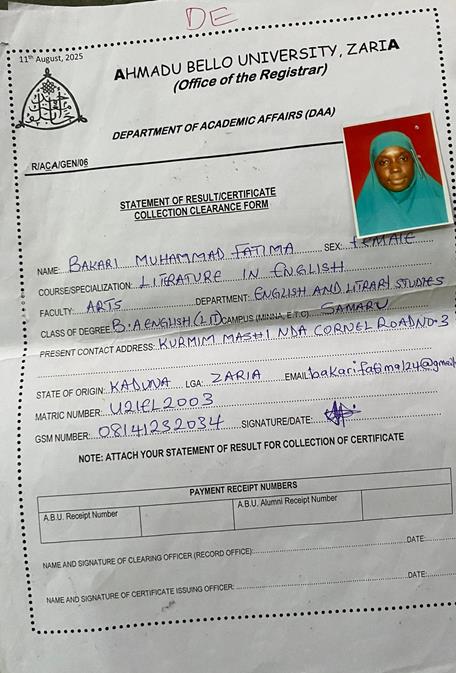 DE
11th August, 2025
AHMADU BELLO UNIVERSITY, ZARIA
(Office of the Registrar)
DEPARTMENT OF ACADEMIC AFFAIRS (DAA)
R/ACA/GEN/06
STATEMENT OF RESULT/CERTIFICATE
COLLECTION CLEARANCE FORM
NAME: BAKARI MUHAMMAD FATIMA SEX: FEMALE
COURSE/SPECIALIZATION: LITERATURE IN ENGLISH
FACULTY: ARTS DEPARTMENT: ENGLISH AND LITRARI STUDIES
CLASS OF DEGREE: B.A ENGLISH (LIT) CAMPUS (MINNA, E.T.C) SAMARU
PRESENT CONTACT ADDRESS: KURMIM MASHI NDA CORNEL ROAD NO-3
STATE OF ORIGIN: KADUNA LGA: ZARIA EMAIL: bakarifatima124@gmail
MATRIC NUMBER: U21EL2003
GSM NUMBER: 08141232034 SIGNATURE/DATE:
NOTE: ATTACH YOUR STATEMENT OF RESULT FOR COLLECTION OF CERTIFICATE
PAYMENT RECEIPT NUMBERS
A.B.U. Receipt Number A.B.U. Alumni Receipt Number
NAME AND SIGNATURE OF CLEARING OFFICER (RECORD OFFICE): DATE:
NAME AND SIGNATURE OF CERTIFICATE ISSUING OFFICER: DATE: